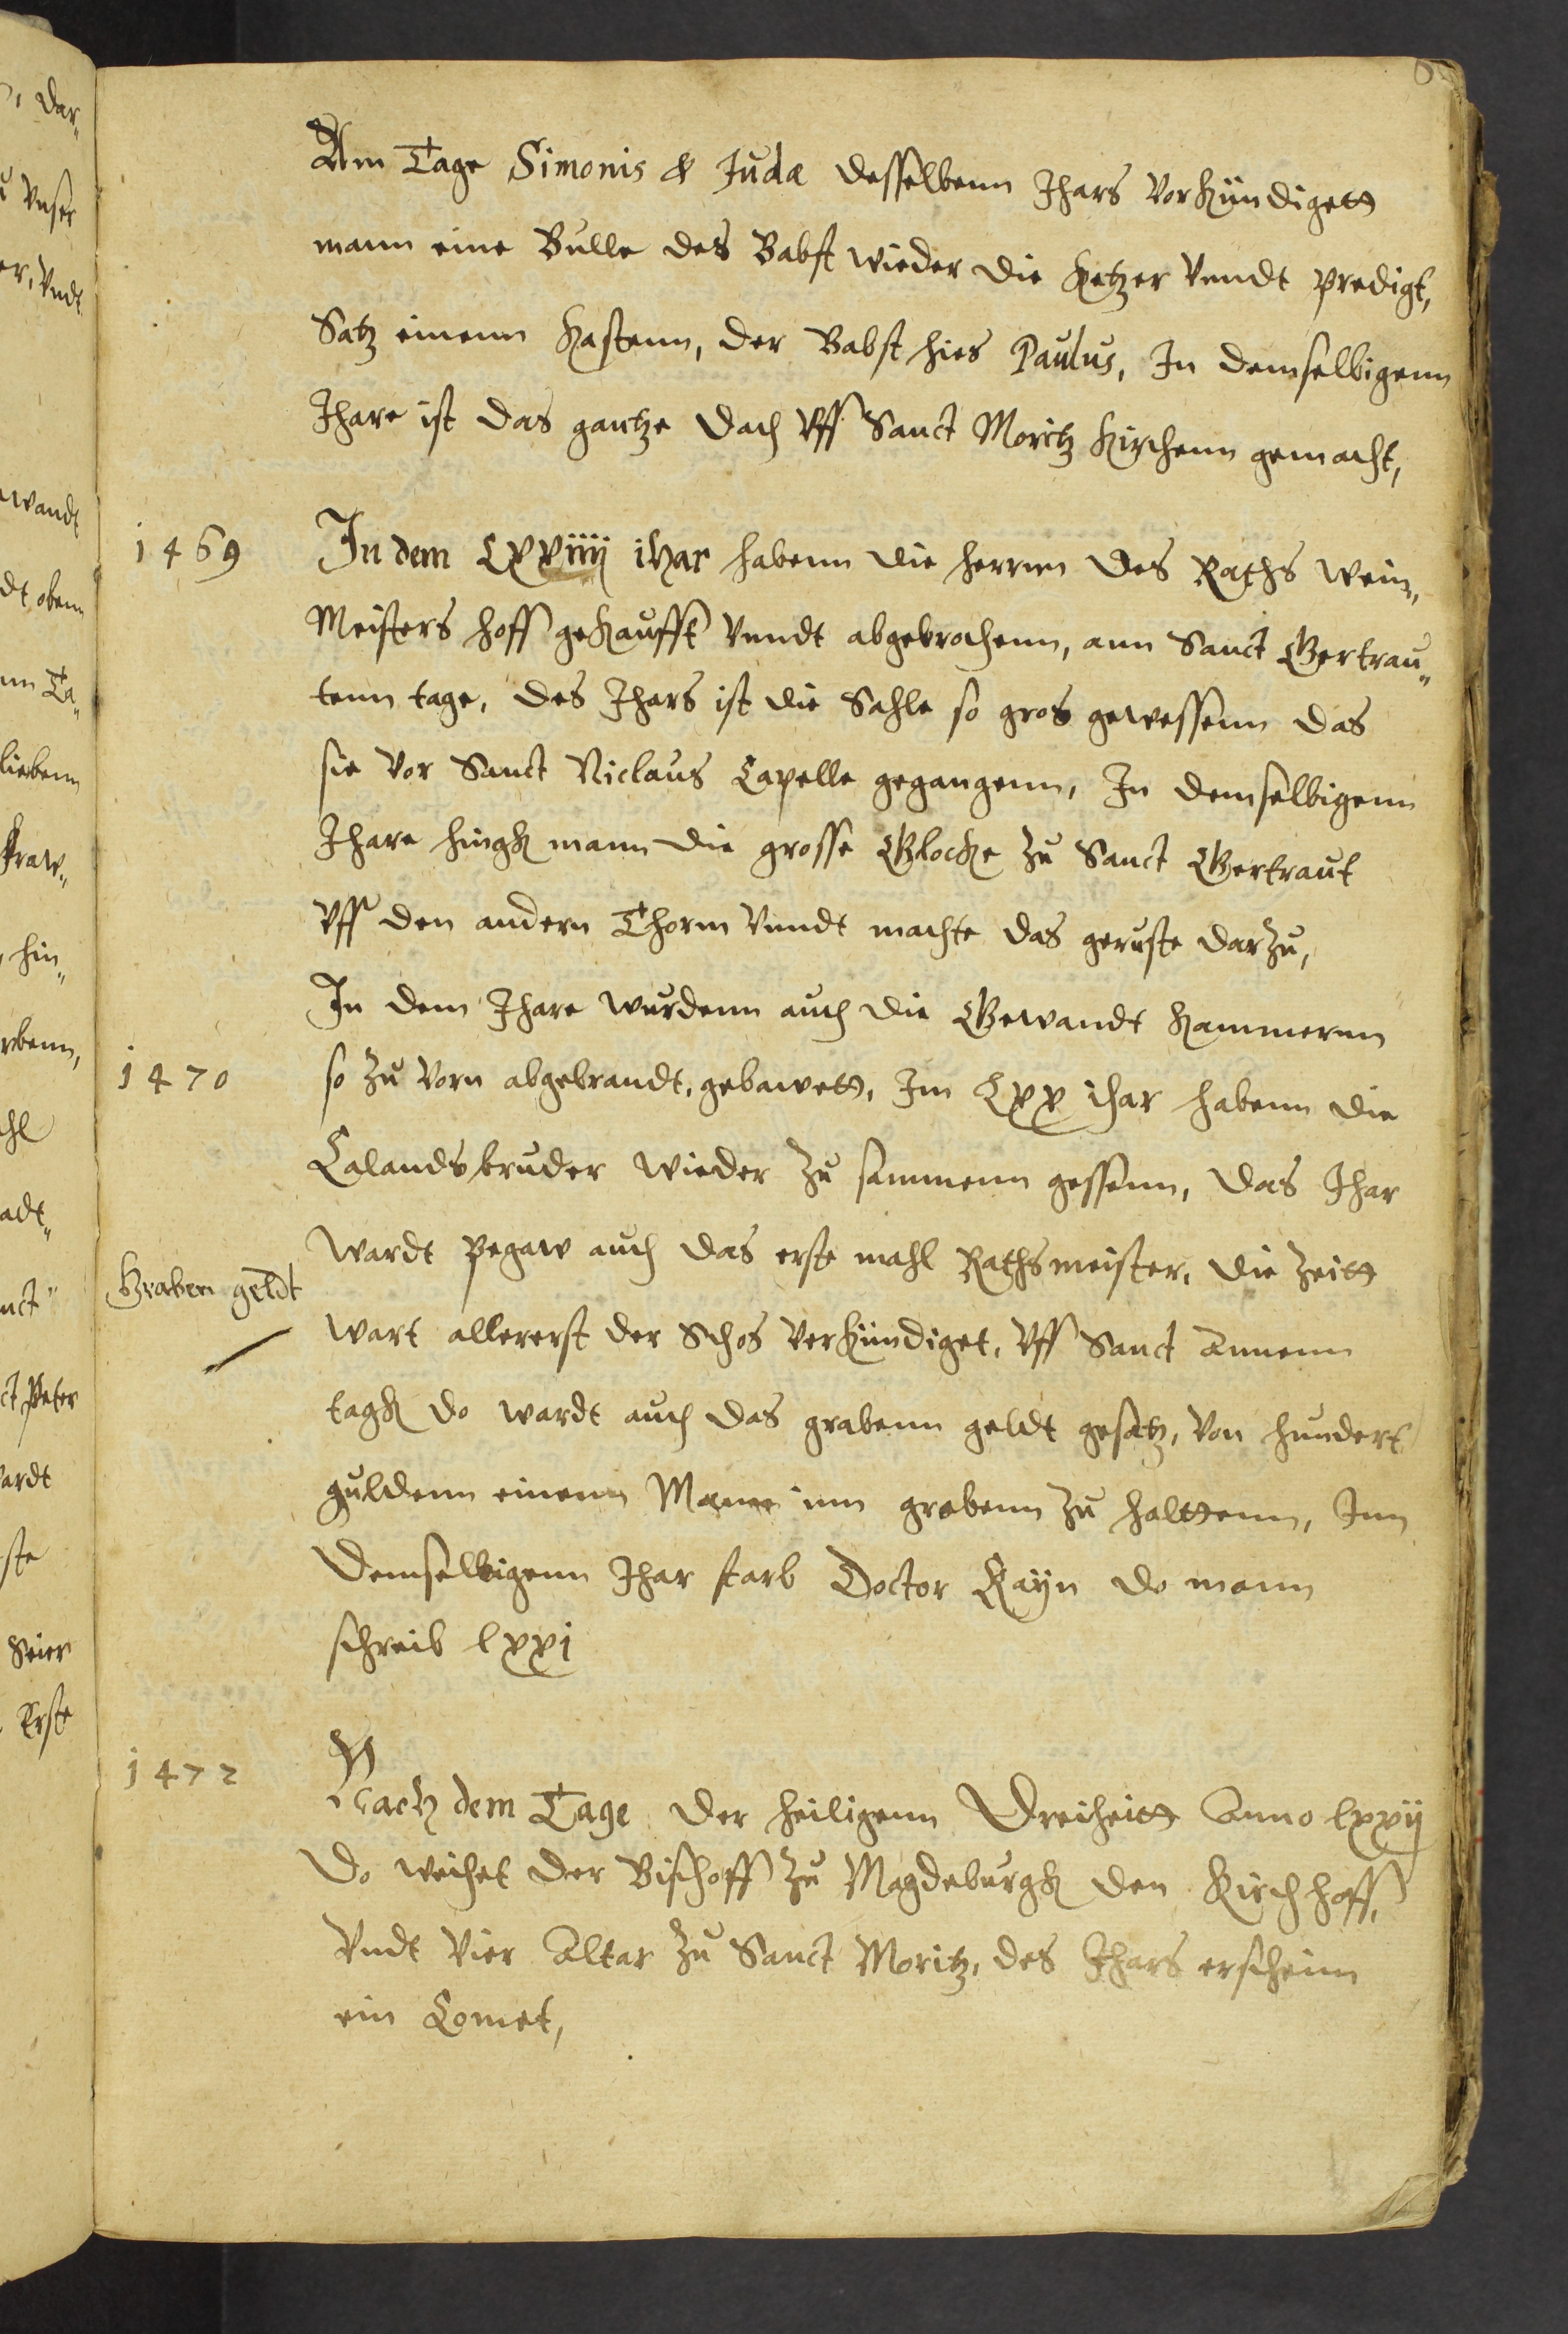 Am Tage Simonis & Judæ desselbenn Jhars Vorkündigett
mann eine Bulle des Babst wieder die Ketzer Vnndt predigt,
Satz einenn Kastenn, der Babst hies Paulus, In demselbigenn
Jhare ist das gantze dach Vff Sanct Moritz Kirchenn gemacht,
1469
In dem LXVIIII ihar habenn die herrnn des Raths Wein„
Meisters hoff gekaufft Vnndt abgebrochenn, ann Sanct Gertrau„
tenn tage, des Jhars ist die Sahle so gros gewessenn das
sie Vor Sanct Niclaus Capelle gegangenn, In demselbigenn
Jhare hingk mann die grosse Glocke zu Sanct Gertraut
Vff den andern Thorm Vnndt machte das geruste darzu,
In dem Jhare wurdenn auch die Gewandt Kammernn
1470
so zu Vorn abgebrandt, gebawett, Im Lxx ihar habenn die
Calandsbruder wieder zu sammenn gessenn, das Jhar
wardt Pegaw auch das erste mahl Rathsmeister, die zeitt
Graben geldt
wart allererst der Schos Verkündiget, Vff Sanct Annenn
tagk do wardt auch das grabenn geldt gesatz, Von hundert
guldenn einenn Mann inn grabenn zu halttenn, Inn
demselbigenn Jhar starb Doctor Rayn do mann
schreib lxxj
1472
Nach dem Tage der heiligenn Dreiheitt Anno lxxij
do weihet der Bischoff zu Magdeburgk den Kirchhoff,
Vndt Vier Altar zu Sanct Moritz, des Jhars erscheinn
ein Comet,